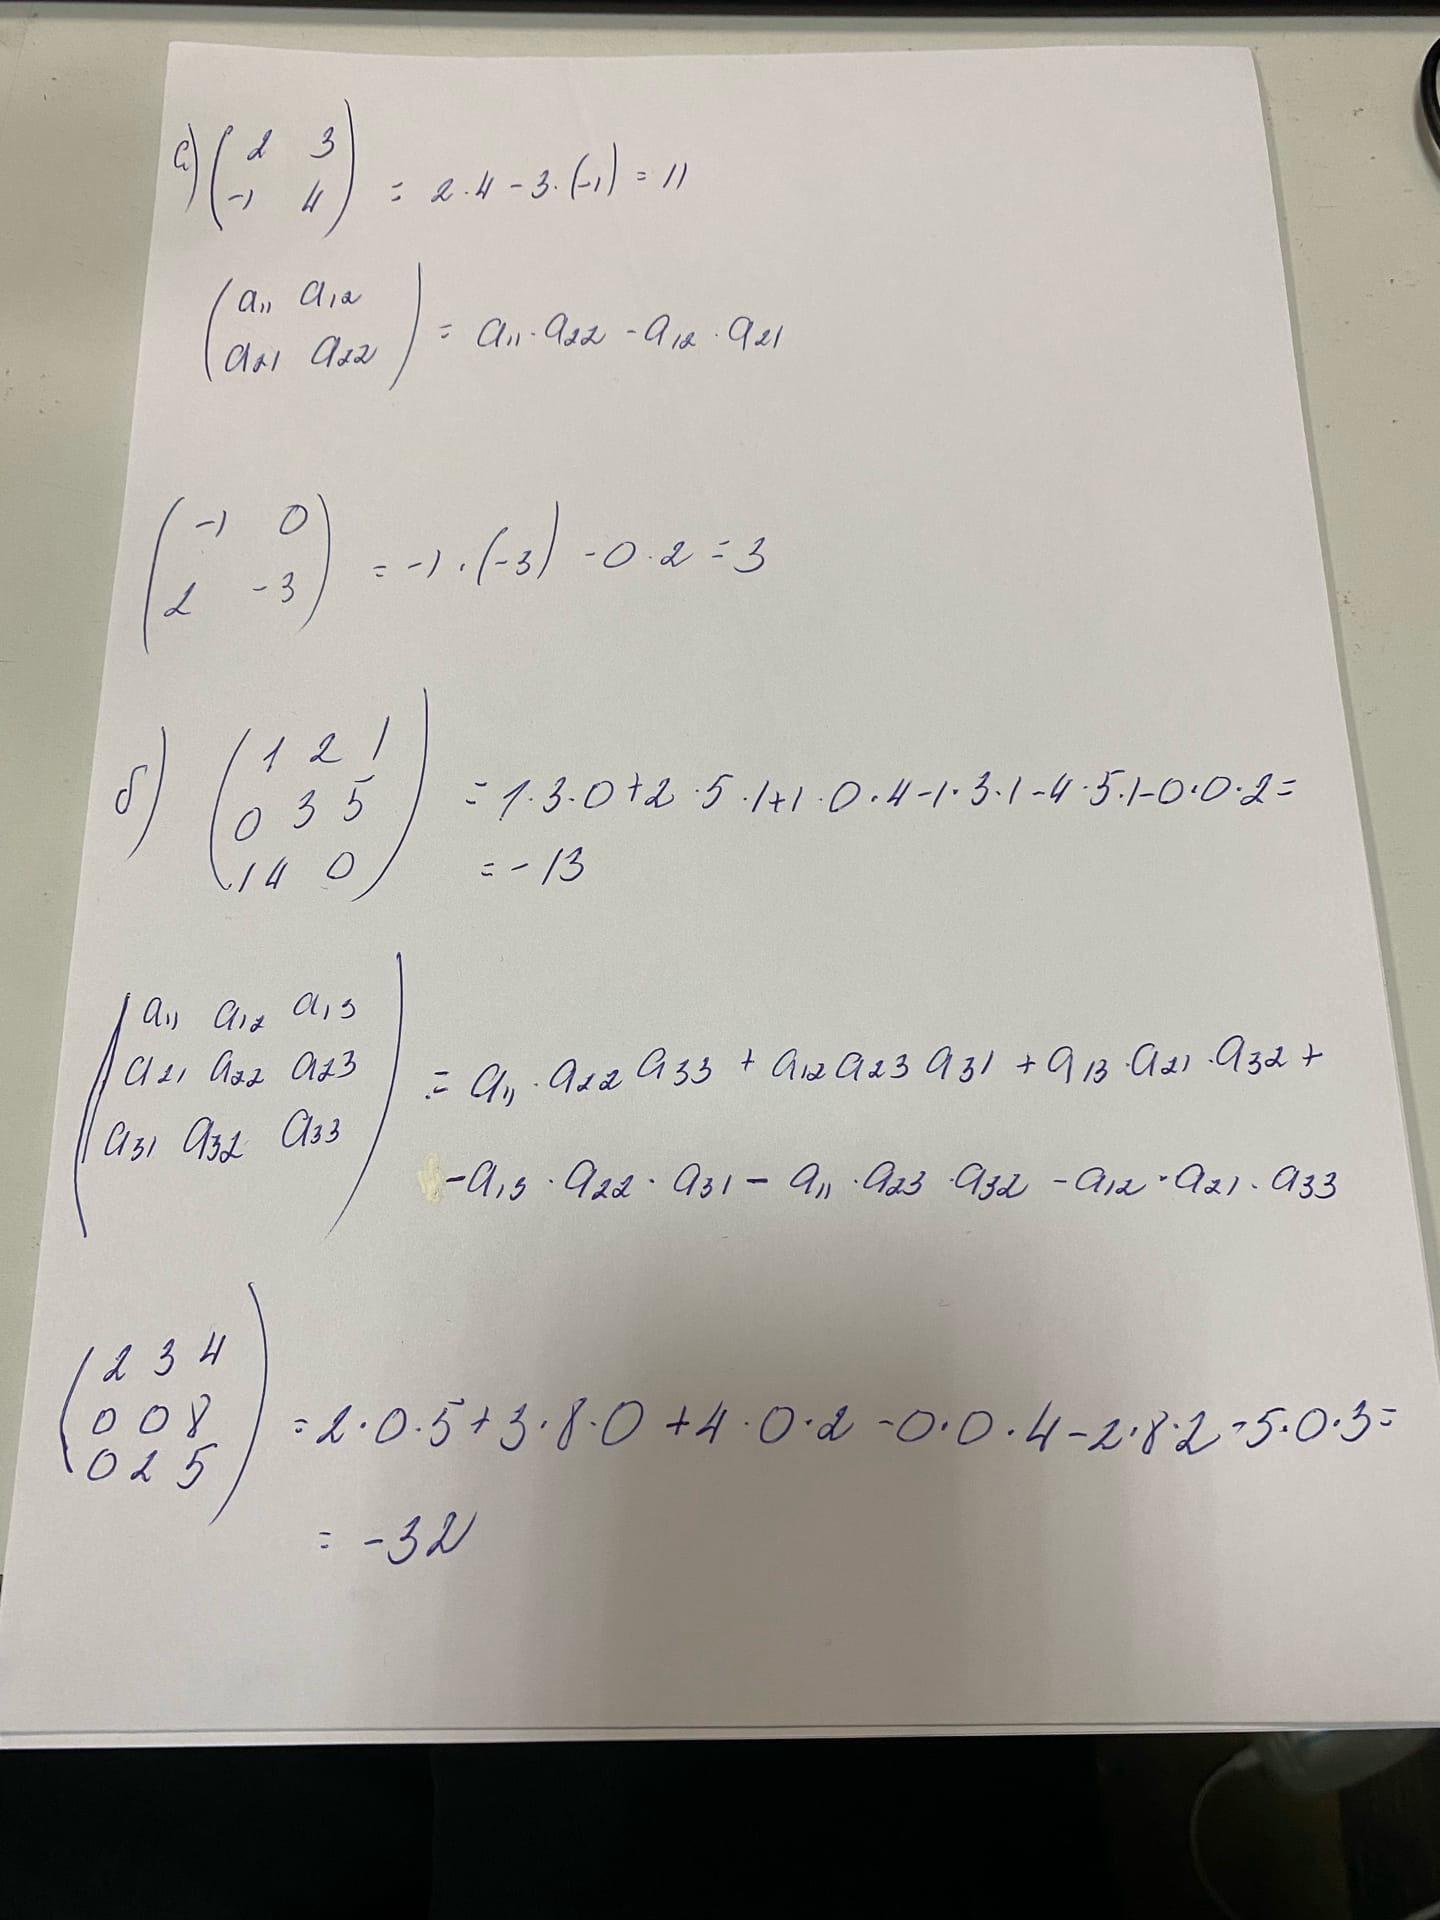 а) ( 2 3
-1 4 ) = 2·4-3·(-1)=11
( a11 a12
a21 a22 ) = a11·a22-a12·a21
( -1 0
2 -3 ) = -1·(-3)-0·2=3
б) ( 1 2 1
0 3 5 = 1·3·0+2·5·1+1·0·4-1·3·1-4·5·1-0·0·2=
1 4 0 ) = -13
( a11 a12 a13
a21 a22 a23 = a11·a22 a33+a12 a23 a31+a13·a21·a32+
a31 a32 a33 ) -a13·a22·a31-a11·a23·a32-a12·a21·a33
( 2 3 4
0 0 8 = 2·0·5+3·8·0+4·0·2-0·0·4-2·8·2-5·0·3=
0 2 5 )
= -32